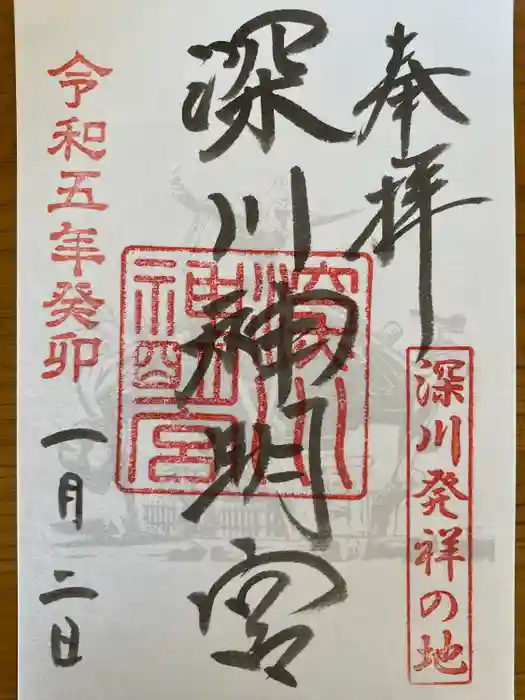 奉拝
深川発祥の地
深川神明宮
深川神明宮
令和五年癸卯
一月二日